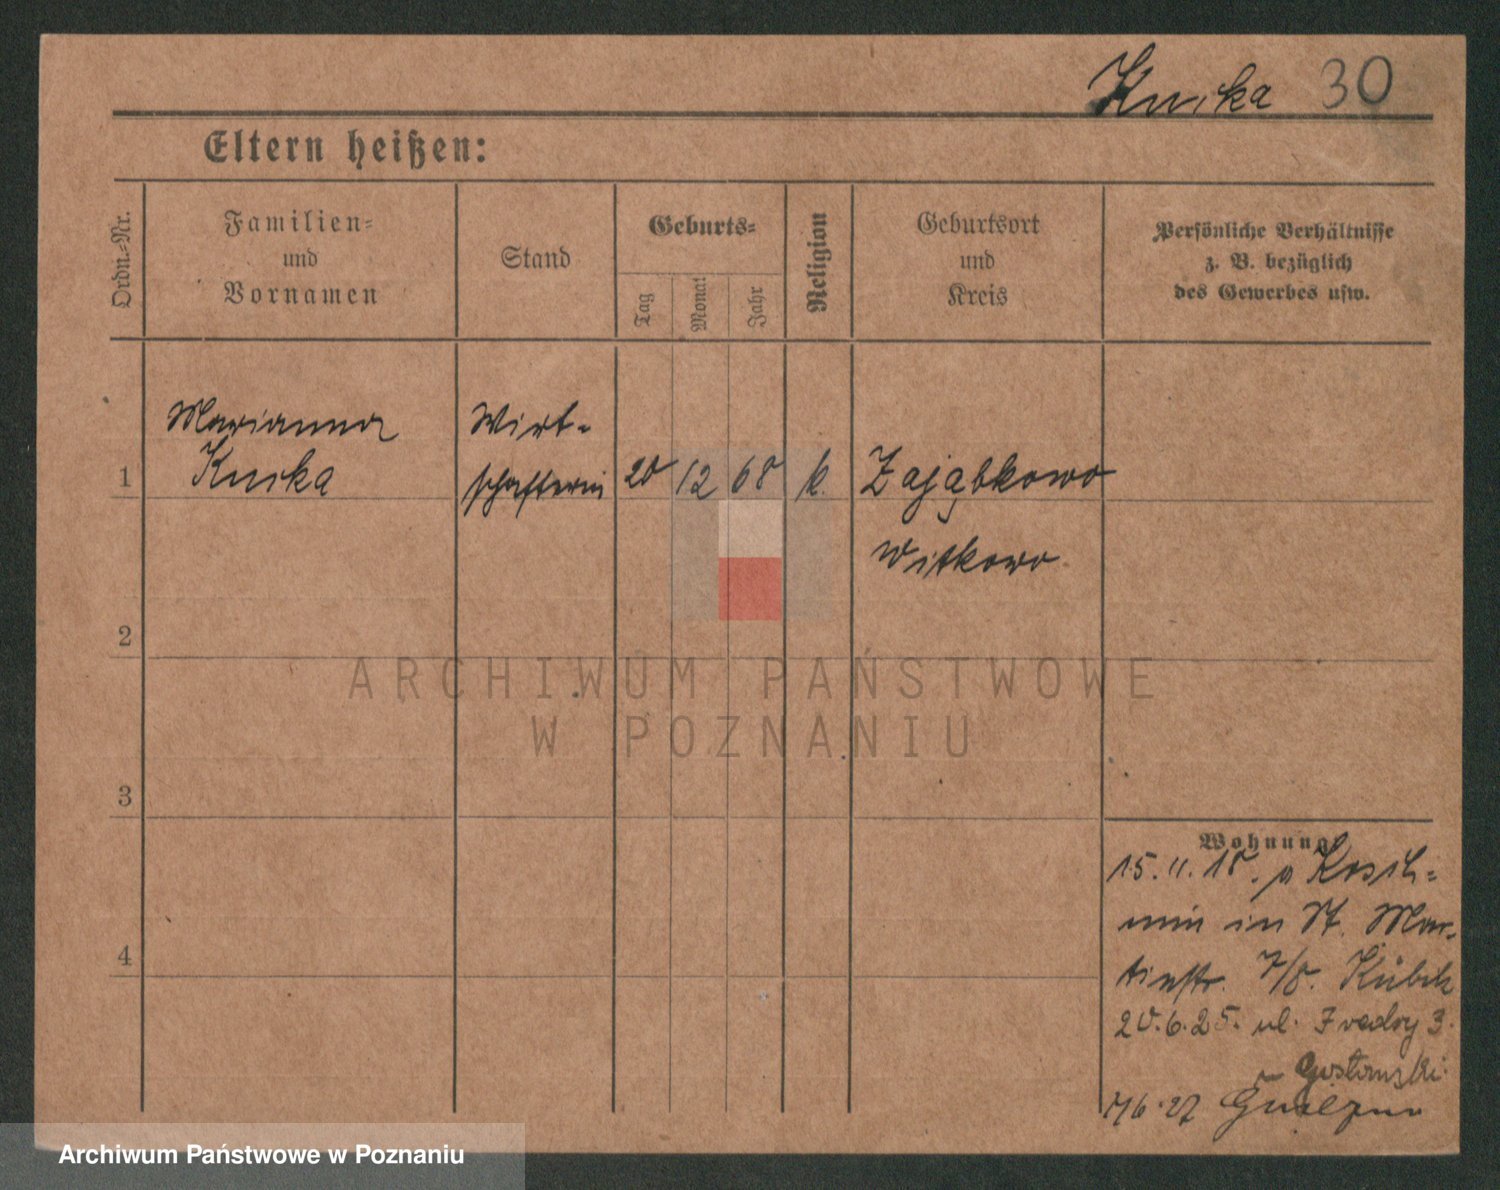 Knuka 30
Eltern heißen:
Ordn.-Nr.
Familien-
und
Vornamen
Stand
Geburts-
Tag
Monat
Jahr
Religion
Geburtsort
und
Kreis
Persönliche Verhältnisse
z. B. bezüglich
des Gewerbes usw.
1
Marianna
Knuka
Wirt-
schafterin
20
12
68
k.
Zajątkowo
Witkowo
2
ARCHIWUM PAŃSTWOWE
W POZNANIU
3
4
Wohnung
15.11.18. v
min in St. Mar-
tinstr. 7/8.
20.6.25. ul. 3.
Gostomski
Gniezno
Archiwum Państwowe w Poznaniu